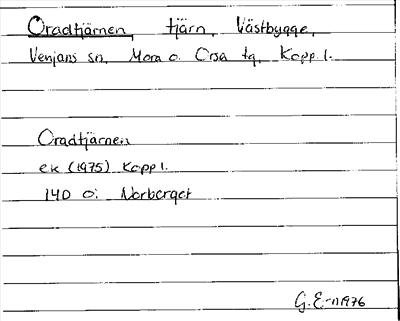 Oradtjärnen, tjärn, Västbygge,
Venjans sn, Mora o. Orsa tg, Kopp. l.
Oradtjärnen
ek (1975) Kopp l.
14D o: Norberget
G. E-n 1976